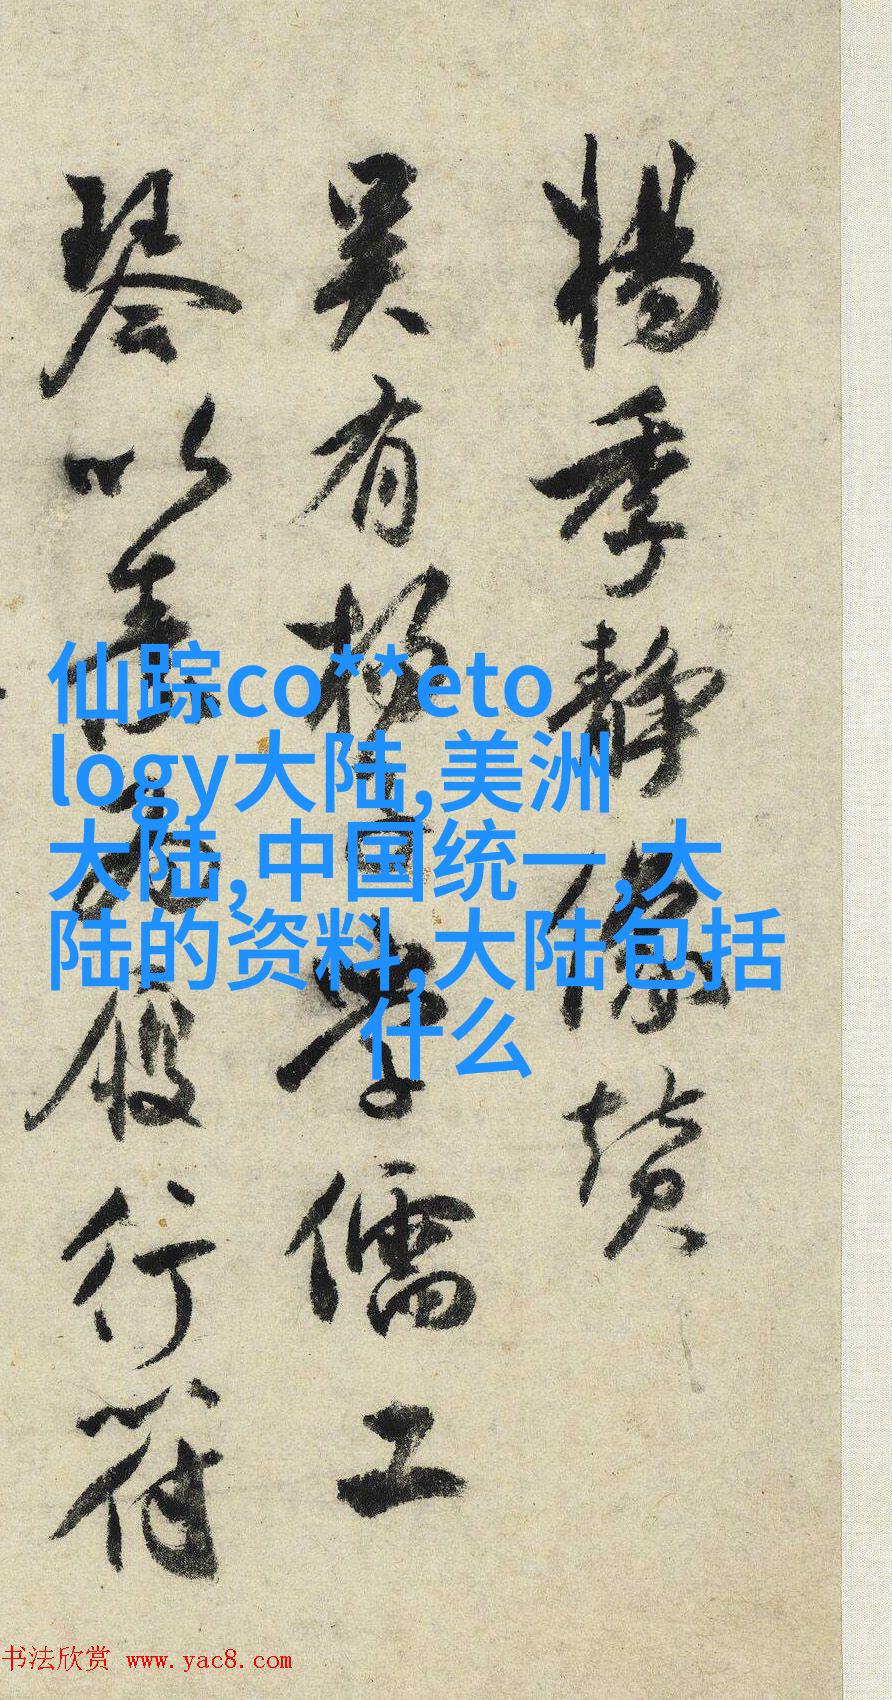 楊季静像赞
吴有楊君學儒工
琴以書履行符
仙踪co**eto
logy大陆,美洲
大陆,中国统一,大
陆的资料,大陆包括
什么
书法欣赏 www.yac8.com